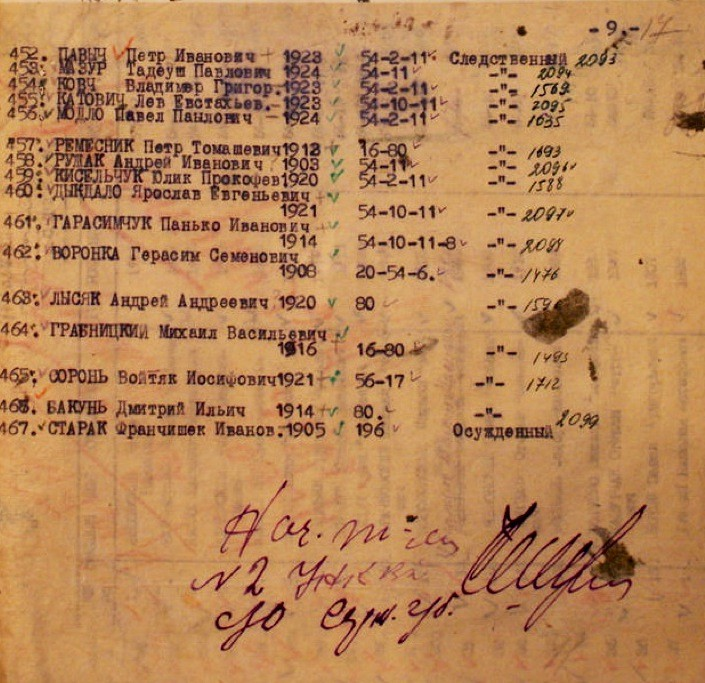 -9- 17
452. ПАВЫЧ Петр Иванович 1923 54-2-11 Следственный 2093
453. МАЗУР Тадеуш Павлович 1924 54-11 -"- 2094
454. КОВЧ Владимер Григор. 1923 54-2-11 -"- 1569
455. КАТОВИЧ Лев Евстахьев. 1923 54-10-11 -"- 2095
456. МОДЛО Павел Панлович 1924 54-2-11 -"- 1635
457. РЕМЕСНИК Петр Томашевич 1912 16-80 -"- 1693
458. РУЩАК Андрей Иванович 1903 54-11 -"- 2096
459. КИСЕЛЬЧУК Юлик Прокофев 1920 54-2-11 -"- 1588
460. ДЫНДАЛО Ярослав Евгеньевич
1921 54-10-11 -"- 2097
461. ГАРАСИМЧУК Панько Иванович
1914 54-10-11-8 -"- 2098
462. ВОРОНКА Герасим Семенович
1908 20-54-6. -"- 1476
463. ЛЫСЯК Андрей Андреевич 1920 80 -"-
464. ГРАБНИЦКИЙ Михаил Васильевич
1916 16-80 -"- 1493
465. СОРОНЬ Войтяк Иосифович 1921 56-17 -"- 1712
466. БАКУНЬ Дмитрий Ильич 1914 80. -"-
467. СТАРАК Франчишек Иванов. 1905 196 Осужденный 2099
Нач.
N2